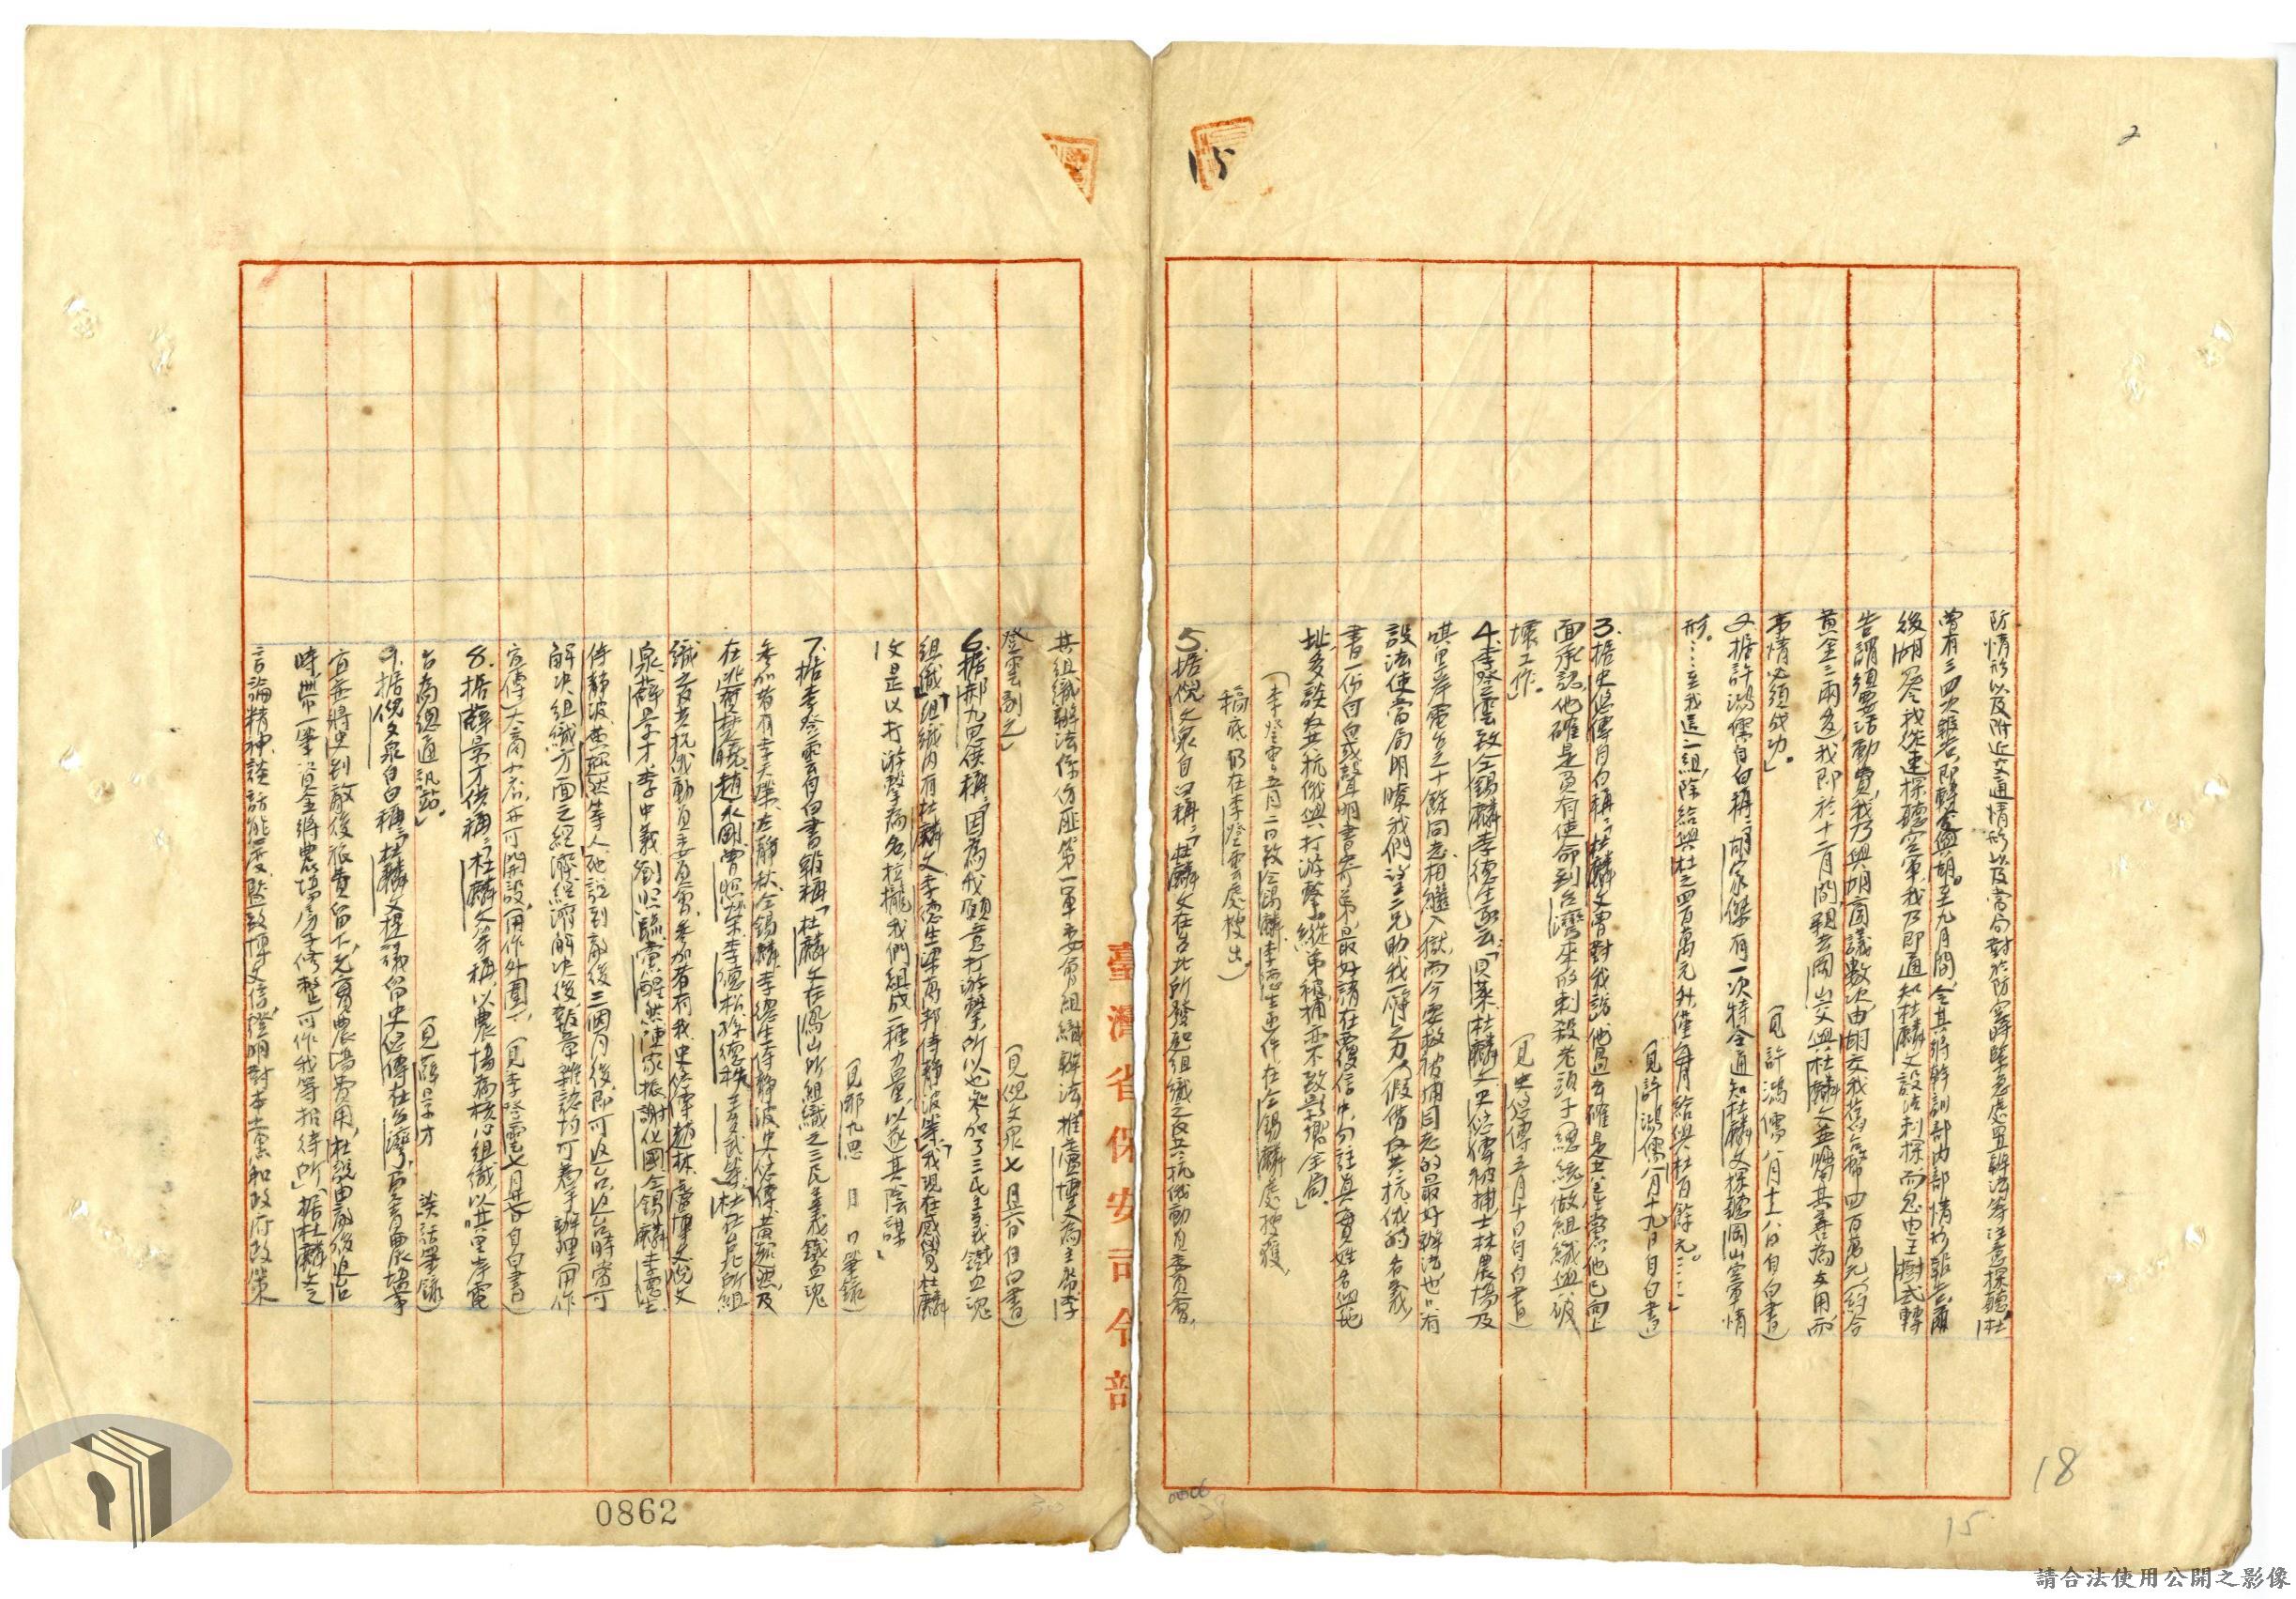 2
15
防情形以及附近交通情形以及當局對於防竊緊急處置辦法等注意探聽杜
曾有三四次報告即轉 與胡至九月間令其將幹訓部內部情形報告
後胡 令我從速探聽空軍我乃即通知杜麟文設法刺探而忽由王樹武轉
告謂須要活動費我乃與胡商議數次由胡交我舊台幣四百萬元(約合
黃金二兩多)我即於十二月間親去岡山交與杜麟文並囑其善為支用而
事情必須成功」(見許鴻儒八月十八日自白書)
又据許鴻儒自白稱「胡家傑有一次特令通知杜麟文探聽岡山空軍情
形……至我這一組除給與杜之四百萬元外僅每月給與杜百餘元……」
(見許鴻儒八月十九日自白書)
3.据史悠傳自白稱「杜麟文曾對我說他過去確是共產黨他已向上
面承認他確是負有使命到台灣來的刺殺老頭子(總統做組織與破
壞工作」(見史悠傳五月十日自白書)
4.李登雲致仝錫麟李德生函云「貝葉杜麟文史悠傳被捕士林農場及
哄里岸電台二十餘同志相繼入獄而今要救被捕同志的最好辦法也只有
設法使當局明瞭我們望二兄助我一臂之力假借反共抗俄的名義
書一份自白或聲明書寄弟最好請在覆信中勿註真實姓名與地
址多談反共抗俄與打游擊縱弟被捕亦不致影響全局」
(李登雲五月二日致仝錫麟李德生函件在仝錫麟處搜獲
稿底仍在李登雲處搜出)
5.据倪文泉自白稱「杜麟文在台北所發起組織之反共抗俄動員委員會
其組織辦法係仿匪第一軍委會組織辦法推盧博文為主席李
登雲副之」(見倪文泉七月 日自白書)
6.据郝九思供稱「因為我願意打游擊所以也參加了三民主義鐵血魂
組織」「組織內有杜麟文李德生梁萬邦侍靜波等」「我現在感覺杜麟
文是以打游擊為名拉攏我們組成一種力量以遂其陰謀」
(見郝九思 月 日筆錄)
7.据李登雲自白書稱「杜麟文在鳳山所組織之三民主義鐵血魂
參加者有李天澤左靜秋仝錫麟李德生侍靜波史悠傳黃 及
在 趙永剛曾 李德松徐德秩 杜在台北所組
織之反共抗俄動員委員會參加者有我史悠傳趙林盧博文倪文
泉薛景才李中義劉照臨 陳家振謝化國仝錫麟李德生
侍靜波黃 等人他說到敵後三個月後即可返台返台時當可
解決組織方面之經濟經濟解決後報章雜誌均可着手辦理(用作
宣傳)大商小店亦可開設(用作外圍)」(見李登雲七月 日自白書)
8.据薛景才供稱「杜麟文等稱以農場為核心組織以哄里岸電
台為組通訊站」(見薛景才 談話筆錄)
9.据倪文泉自白稱「杜麟文提議留史悠傳在台灣負責農場事
宜並將史到敵後旅費留下充實農場費用杜說由敵後返台
時帶一筆資金將農場房子修整可作我等招待所」「据杜麟文之
言論精神談話能力及監致博文信證明對本黨和政府政策
臺灣省保安司令部
0862
0006
18
15
請合法使用公開之影像